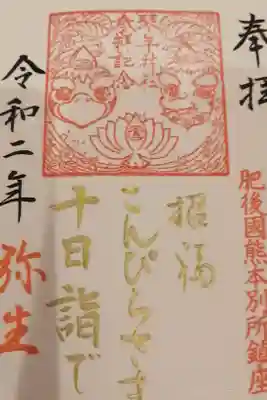 奉拝
肥後國熊本別所鎮座
参拝記念
招福
こんぴらさま
十日詣で
令和二年
弥生